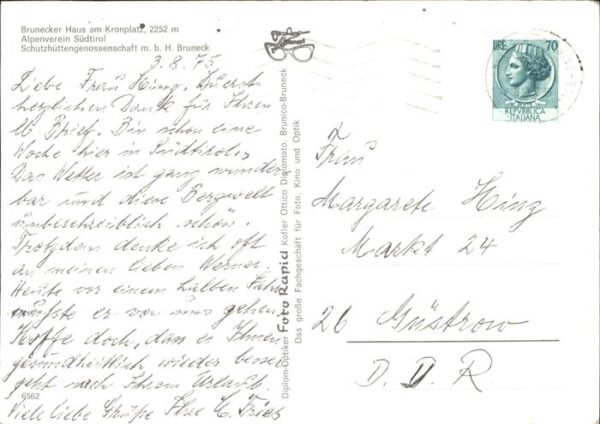 Brunecker Haus am Kronplatz, 2252 m
Alpenverein Südtirol
Schutzhüttengenossenschaft m. b. H. Bruneck
3.8.75
Liebe Frau Hinz, Zuerst
herzlichen Dank für Ihren
lb. Brief. Bin schon eine
Woche hier in Südtirol.
Das Wetter ist ganz wunder
bar und diese Bergwelt
unbeschreiblich schön.
Trotzdem denke ich oft
an meinen lieben Werner.
Heute vor einem halben Jahr
mußte er von uns gehen.
Hoffe doch, das es Ihnen
gesundheitlich wieder besser
geht nach Ihrem Urlaub.
Viele liebe Grüße Ihre
6562
Diplom-Optiker Foto Rapid Kofler Ottico Diplomato, Brunico-Bruneck
Das große Fachgeschäft für Foto, Kino und Optik
LIRE 70
REPVBBLICA
ITALIANA
Frau
Margarete Hinz
Markt 24
26 Güstrow
D. D. R.